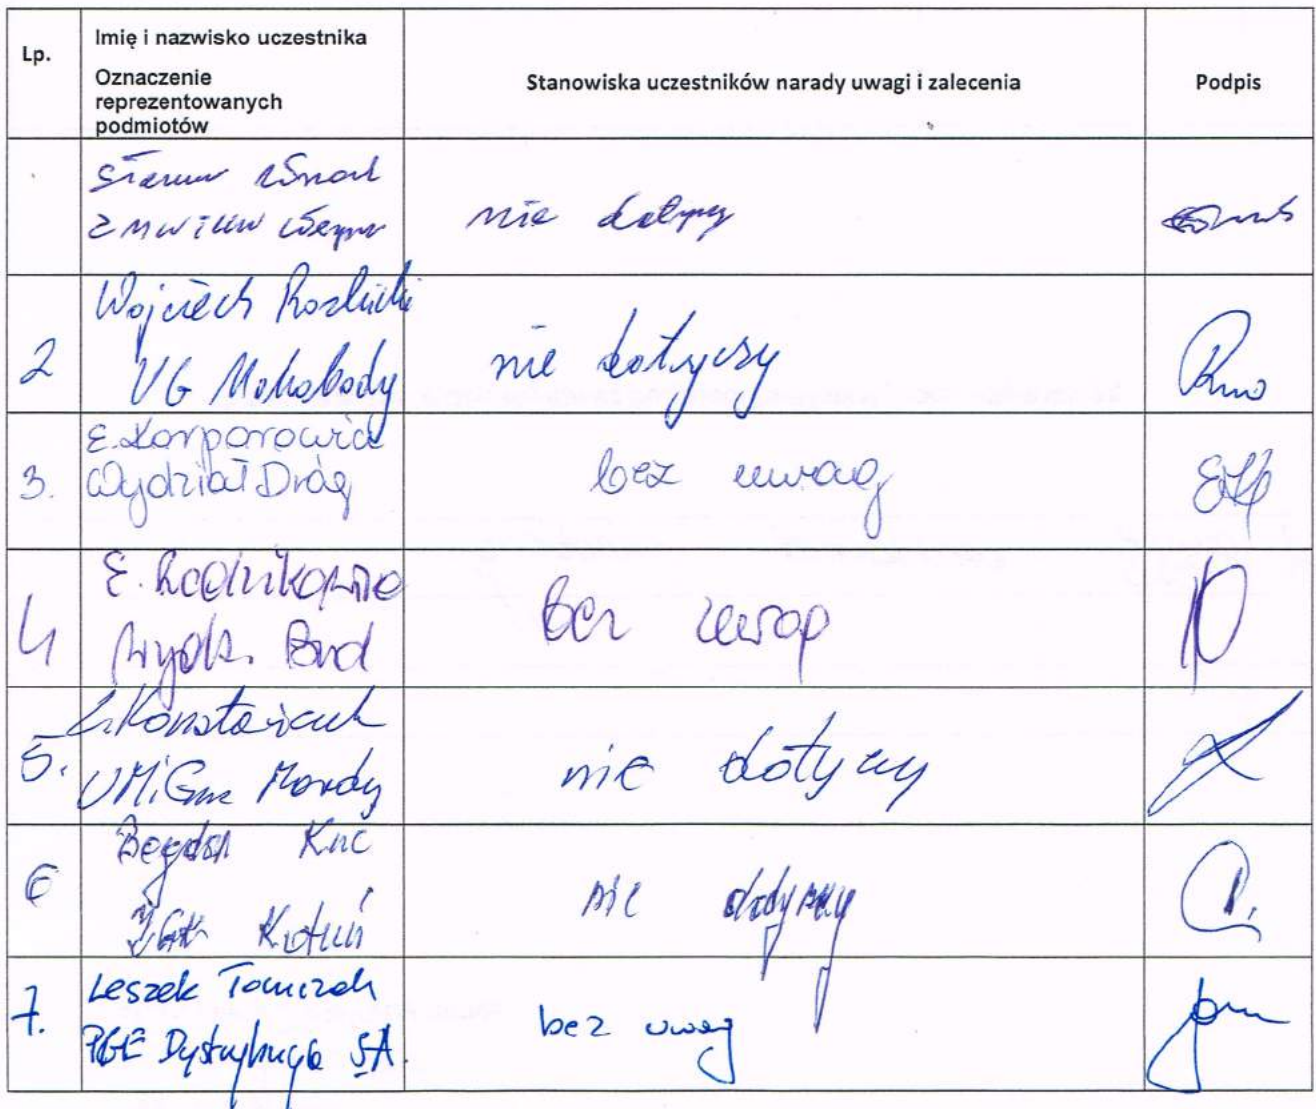 Lp.
Imię i nazwisko uczestnika
Oznaczenie
reprezentowanych
podmiotów
Stanowiska uczestników narady uwagi i zalecenia
Podpis
nie dotyczy
2
Wojciech
UG Mokobody
nie dotyczy
3.
E. Karporowicz
Wydział Dróg
bez uwag
4
E.
Wydz. Bud
bez uwag
5.
UMiGm Mordy
nie dotyczy
6
Bogdan Kuc
ZGK Kotuń
nie dotyczy
7.
Leszek Tomczak
PGE Dystrybucja S.A.
bez uwag